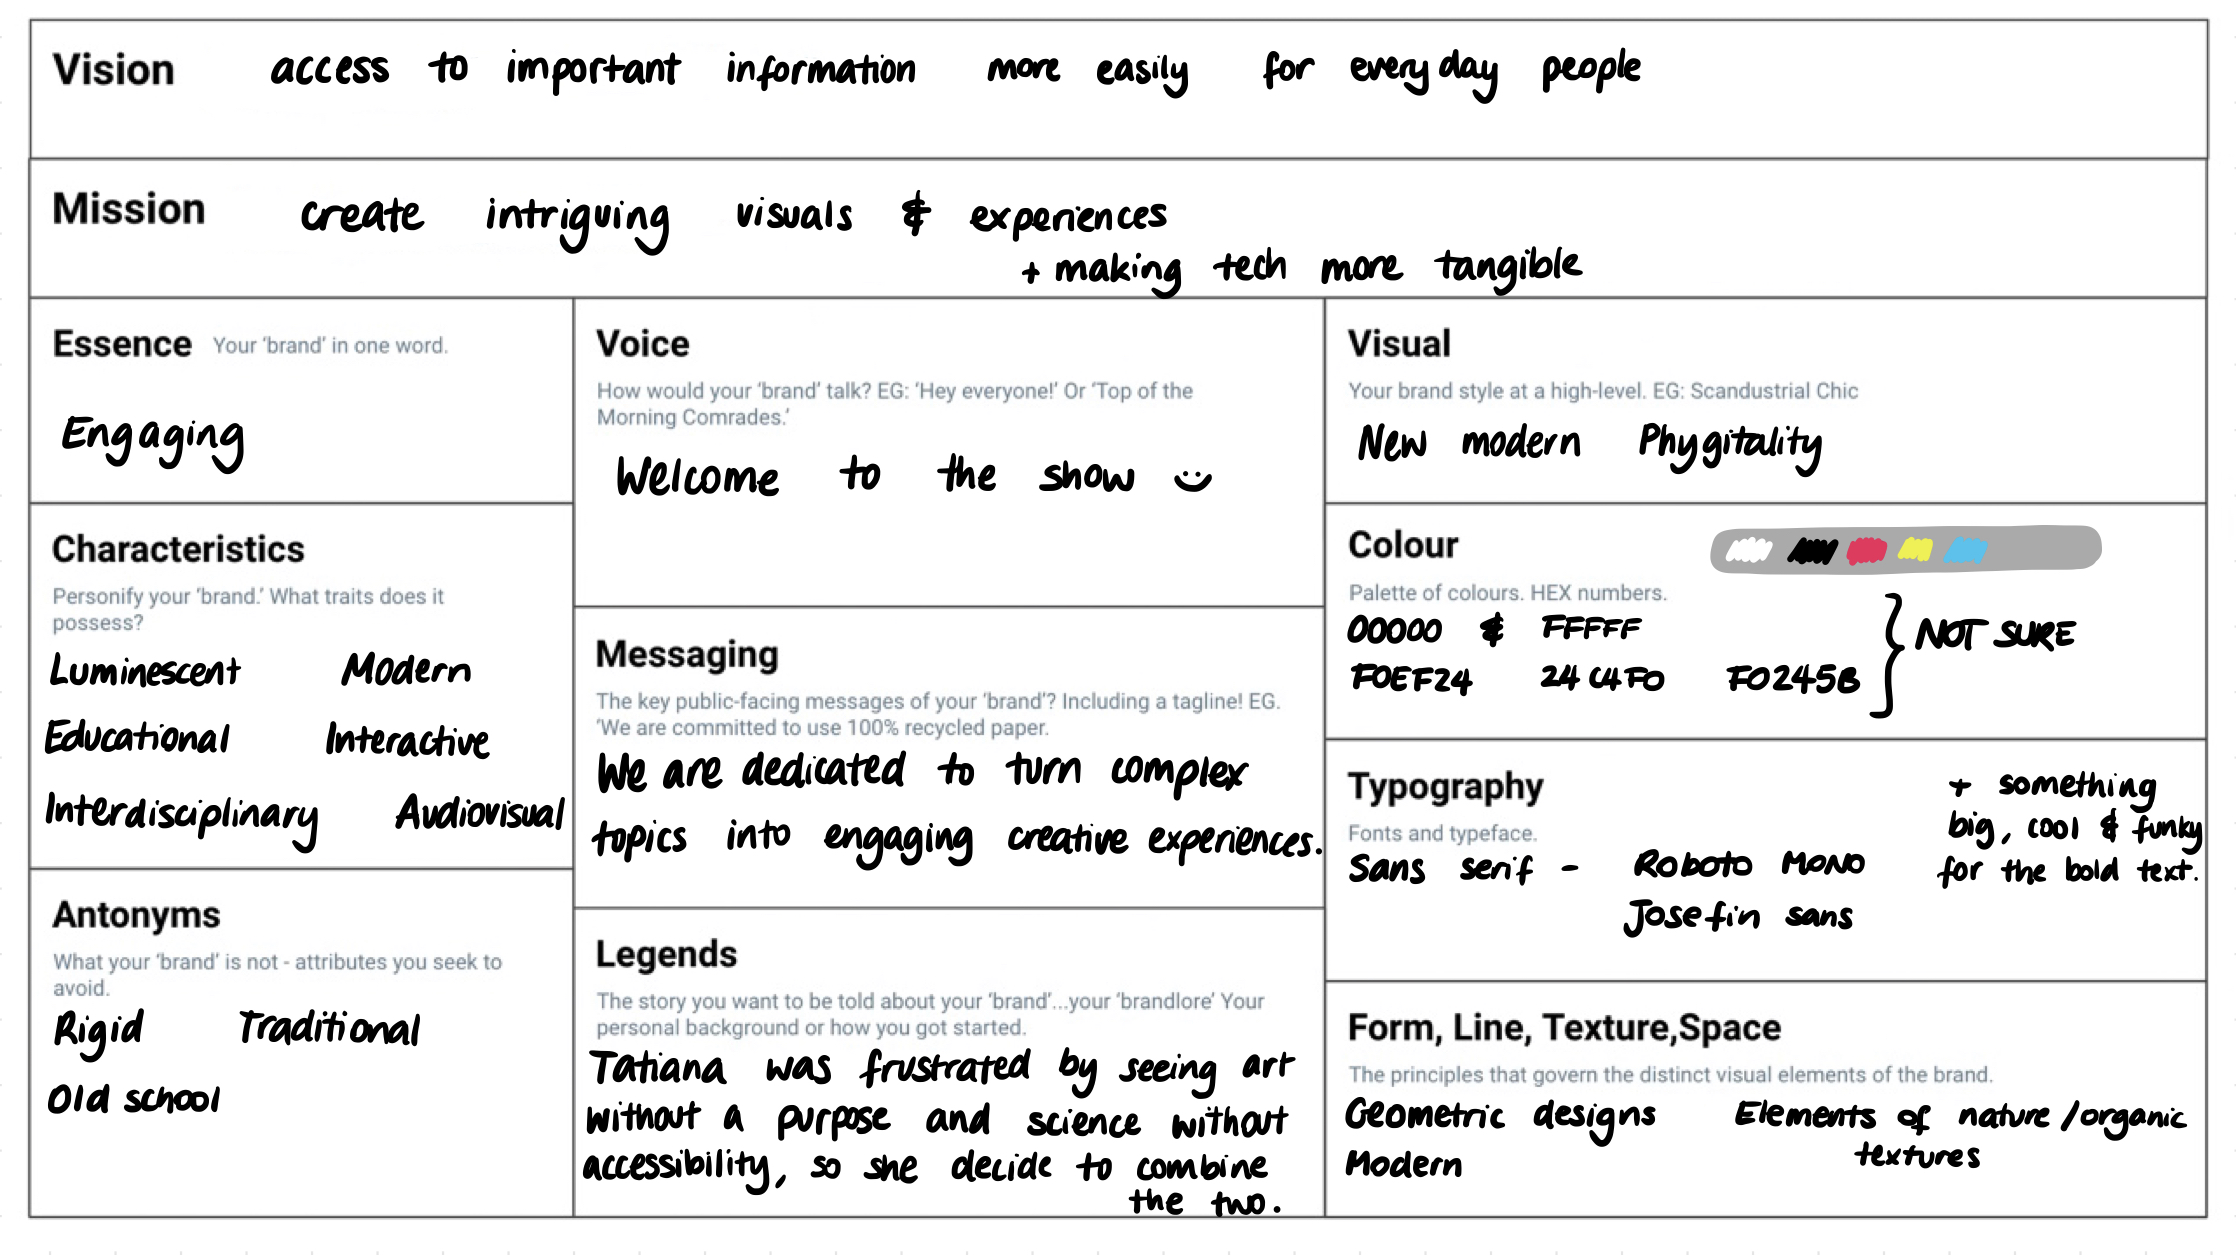 Vision access to important information more easily for everyday people
Mission create intriguing visuals & experiences
+ making tech more tangible
Essence Your 'brand' in one word.
Engaging
Characteristics
Personify your 'brand.' What traits does it
possess?
Luminescent Modern
Educational Interactive
Interdisciplinary Audiovisual
Antonyms
What your 'brand' is not - attributes you seek to
avoid.
Rigid Traditional
Old school
Voice
How would your 'brand' talk? EG: 'Hey everyone!' Or 'Top of the
Morning Comrades.'
Welcome to the show :)
Messaging
The key public-facing messages of your 'brand'? Including a tagline! EG.
'We are committed to use 100% recycled paper.
We are dedicated to turn complex
topics into engaging creative experiences.
Legends
The story you want to be told about your 'brand'...your 'brandlore' Your
personal background or how you got started.
Tatiana was frustrated by seeing art
without a purpose and science without
accessibility, so she decide to combine
the two.
Visual
Your brand style at a high-level. EG: Scandustrial Chic
New modern Phygitality
Colour
Palette of colours. HEX numbers.
00000 & FFFFF
F0EF24 24C4F0 F0245B
} NOT SURE
Typography
Fonts and typeface.
Sans serif - Roboto MONO
Josefin sans
+ something
big, cool & funky
for the bold text.
Form, Line, Texture,Space
The principles that govern the distinct visual elements of the brand.
Geometric designs Elements of nature/organic
textures
Modern